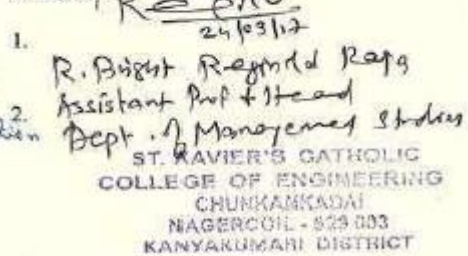 24/03/17
1.
R. Bright Reginold Raja
2. Assistant Prof & Head
Dept. of Management Studies
ST. XAVIER'S CATHOLIC
COLLEGE OF ENGINEERING
CHUNKANKADAI
NAGERCOIL - 629 003
KANYAKUMARI DISTRICT